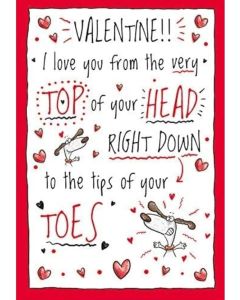 VALENTINE!!
I love you from the very
TOP of your HEAD
RIGHT DOWN
to the tips of your
TOES